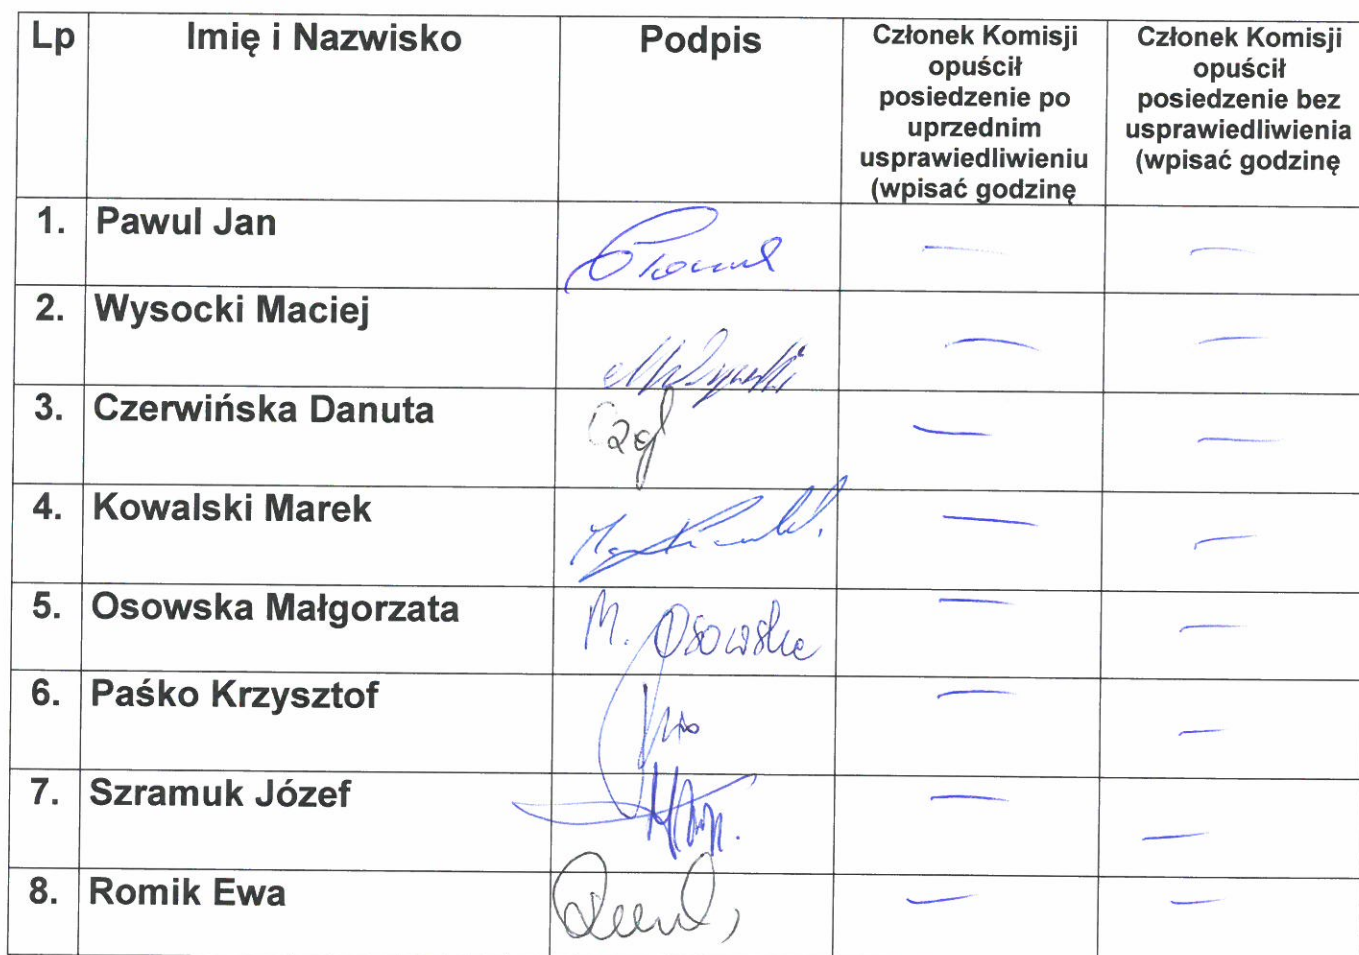 Lp
Imię i Nazwisko
Podpis
Członek Komisji
opuścił
posiedzenie po
uprzednim
usprawiedliwieniu
(wpisać godzinę
Członek Komisji
opuścił
posiedzenie bez
usprawiedliwienia
(wpisać godzinę
1. Pawul Jan
2. Wysocki Maciej
3. Czerwińska Danuta
4. Kowalski Marek
5. Osowska Małgorzata M. Osowska
6. Paśko Krzysztof
7. Szramuk Józef
8. Romik Ewa